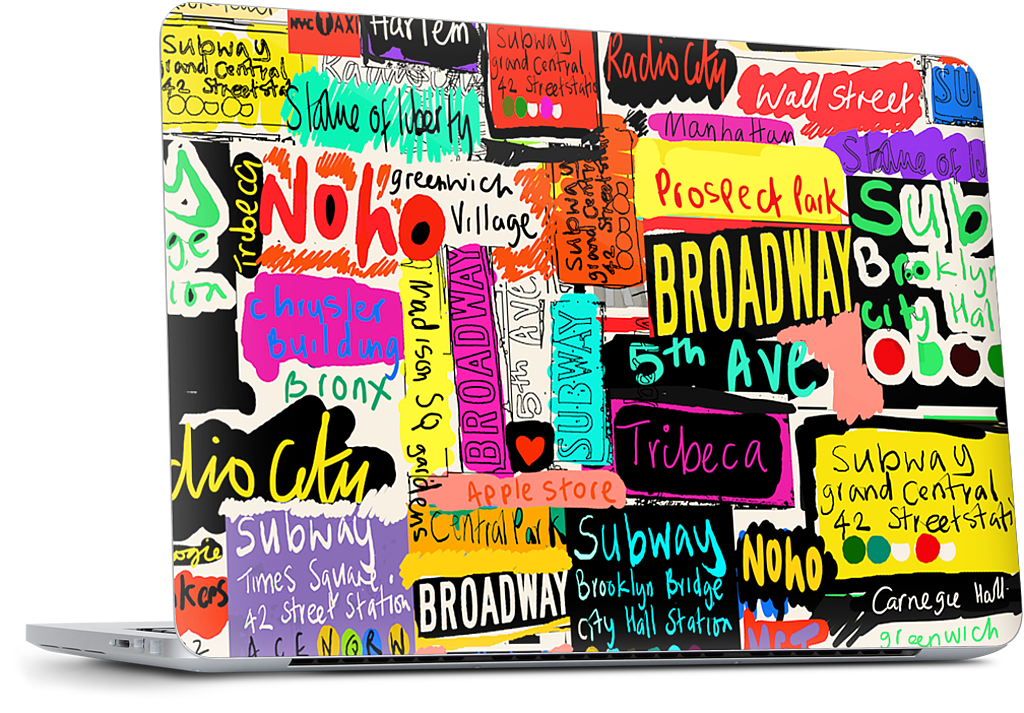 Subway
grand Central
42 Streetstati
NYC TAXI
Harlem
Subway
grand Central
42 Streetstatio
Radio City
Wall Street
SU
Statue of liberty
Manhattan
Statue of li
Tribeca
NoHo
greenwich
Village
Subway
grand Central
42 Streetsta
Prospect Park
Sub
Brooklyn
City Hal
BROADWAY
ge
ion
chrysler
Building
Bronx
Madison SQ gardens
BROADWAY
5th AVE
SUBWAY
5th Ave
Tribeca
dio City
Apple Store
Subway
grand Central
42 Streetstati
Subway
Times Square.
42 Street Station
A C E N Q R W
Central Park
BROADWAY
Subway
Brooklyn Bridge
City Hall Station
NoHo
Carnegie Hall.
greenwich
ogie
kers
2